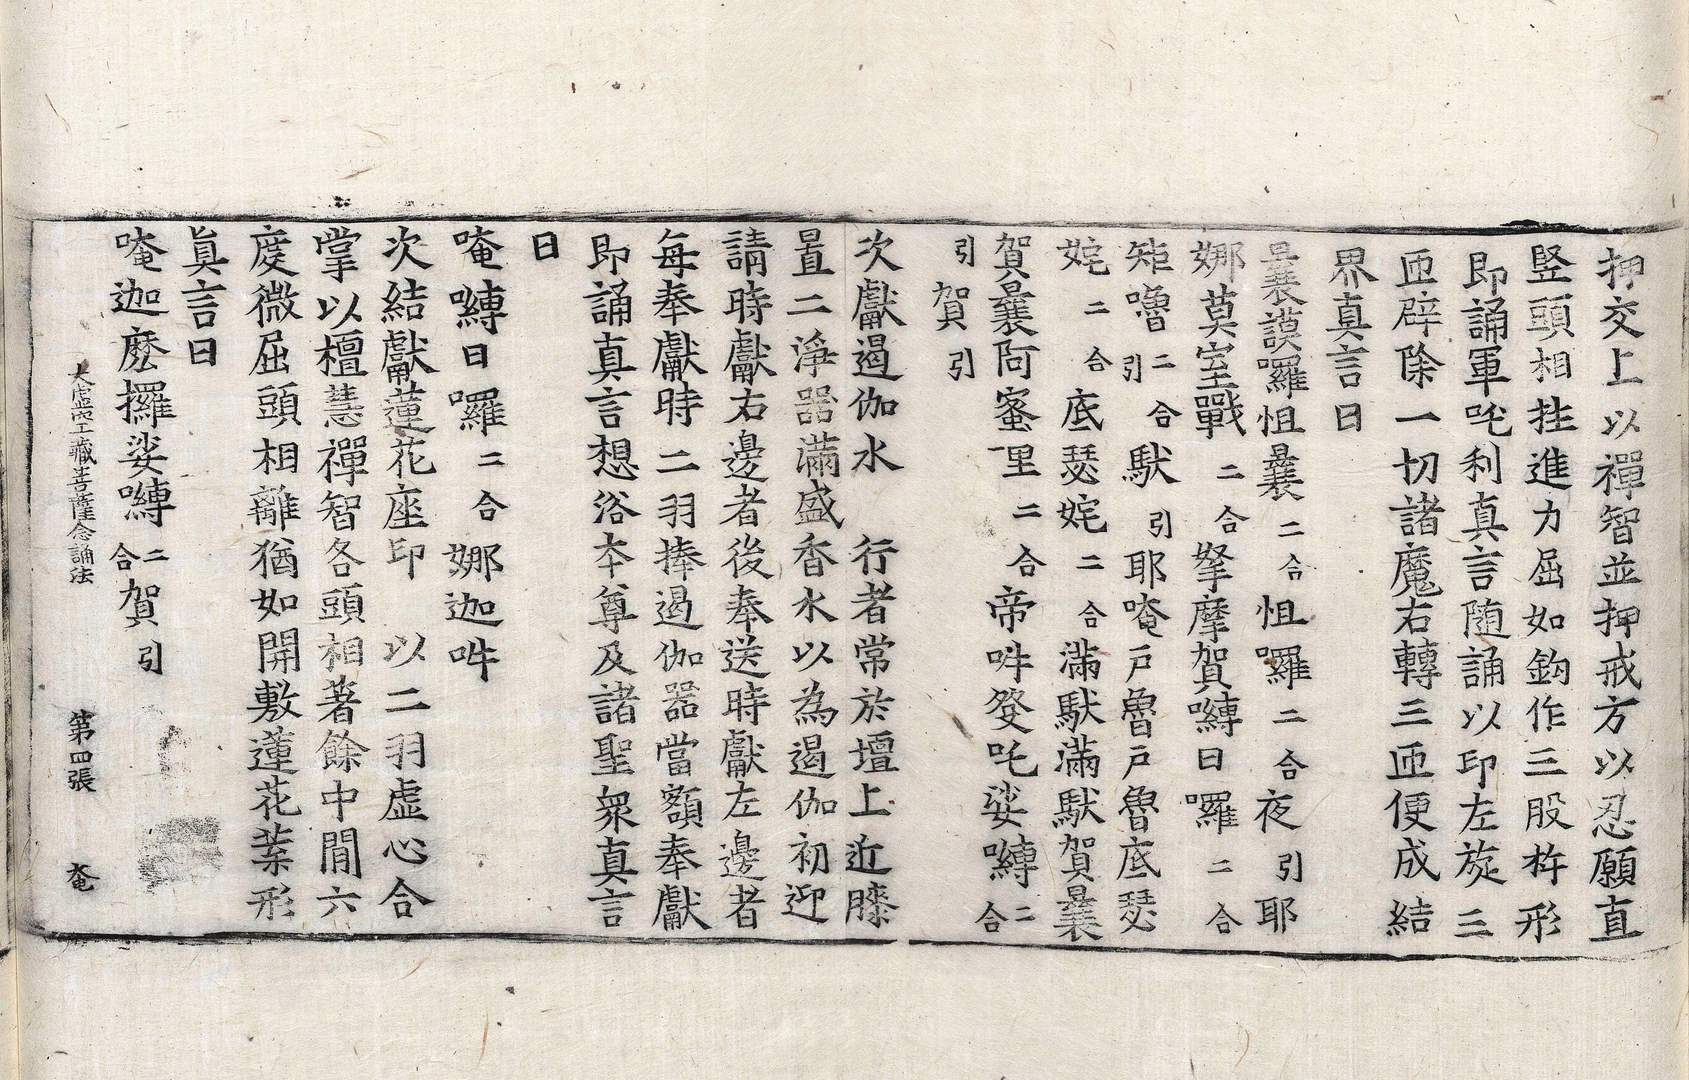 押交上以禪智並押戒方以忍願直
竪頭相拄進力屈如鉤作三股杵形
即誦軍吒利真言随誦以印左旋三
匝辟除一切諸魔右轉三匝便成結
界真言曰
曩謨囉怛曩二合怛囉二合夜引耶
娜莫室戰二合拏摩賀嚩日囉二合
矩嚕二合引馱引耶唵戸魯戸魯底瑟
姹二合底瑟姹二合滿馱滿馱賀曩
賀曩阿蜜里二合帝吽發吒娑嚩二合
引賀引
次獻遏伽水 行者常於壇上近膝
置二淨器滿盛香水以為遏伽初迎
請時獻右邊者後奉送時獻左邊者
每奉獻時二羽捧遏伽器當額奉獻
即誦真言想浴本尊及諸聖衆真言
曰
唵嚩日囉二合娜迦吽
次結獻蓮花座印 以二羽虛心合
掌以檀慧禪智各頭相著餘中間六
度微屈頭相離猶如開敷蓮花葉形
真言曰
唵迦麽攞娑嚩二合賀引
大虛空藏菩薩念誦法 第四張 奄